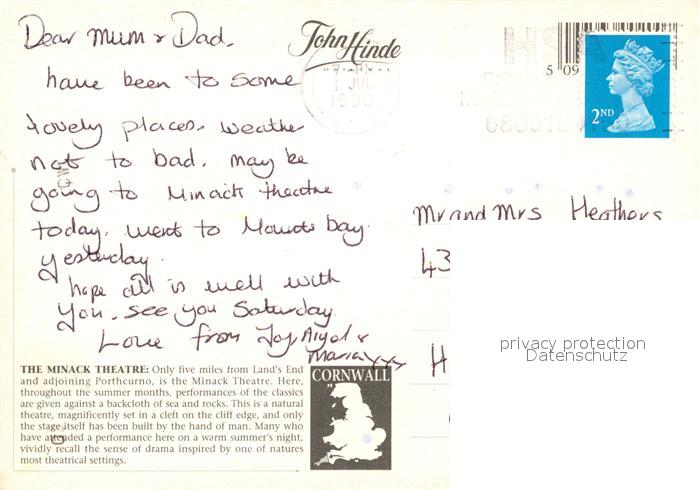 Dear Mum & Dad,
have been to some
lovely places. Weather
not to bad. may be
going to Minack theatre
today. went to Mounts Bay
yesterday.
hope all is well with
you. see you Saturday
Love from Joy Nigel &
Maria xxx
John Hinde
ORIGINAL
1 JUL
5 09
2ND
Mr and Mrs Heathers
43
H
privacy protection
Datenschutz
THE MINACK THEATRE: Only five miles from Land's End
and adjoining Porthcurno, is the Minack Theatre. Here,
throughout the summer months, performances of the classics
are given against a backcloth of sea and rocks. This is a natural
theatre, magnificently set in a cleft on the cliff edge, and only
the stage itself has been built by the hand of man. Many who
have attended a performance here on a warm summer's night,
vividly recall the sense of drama inspired by one of natures
most theatrical settings.
CORNWALL